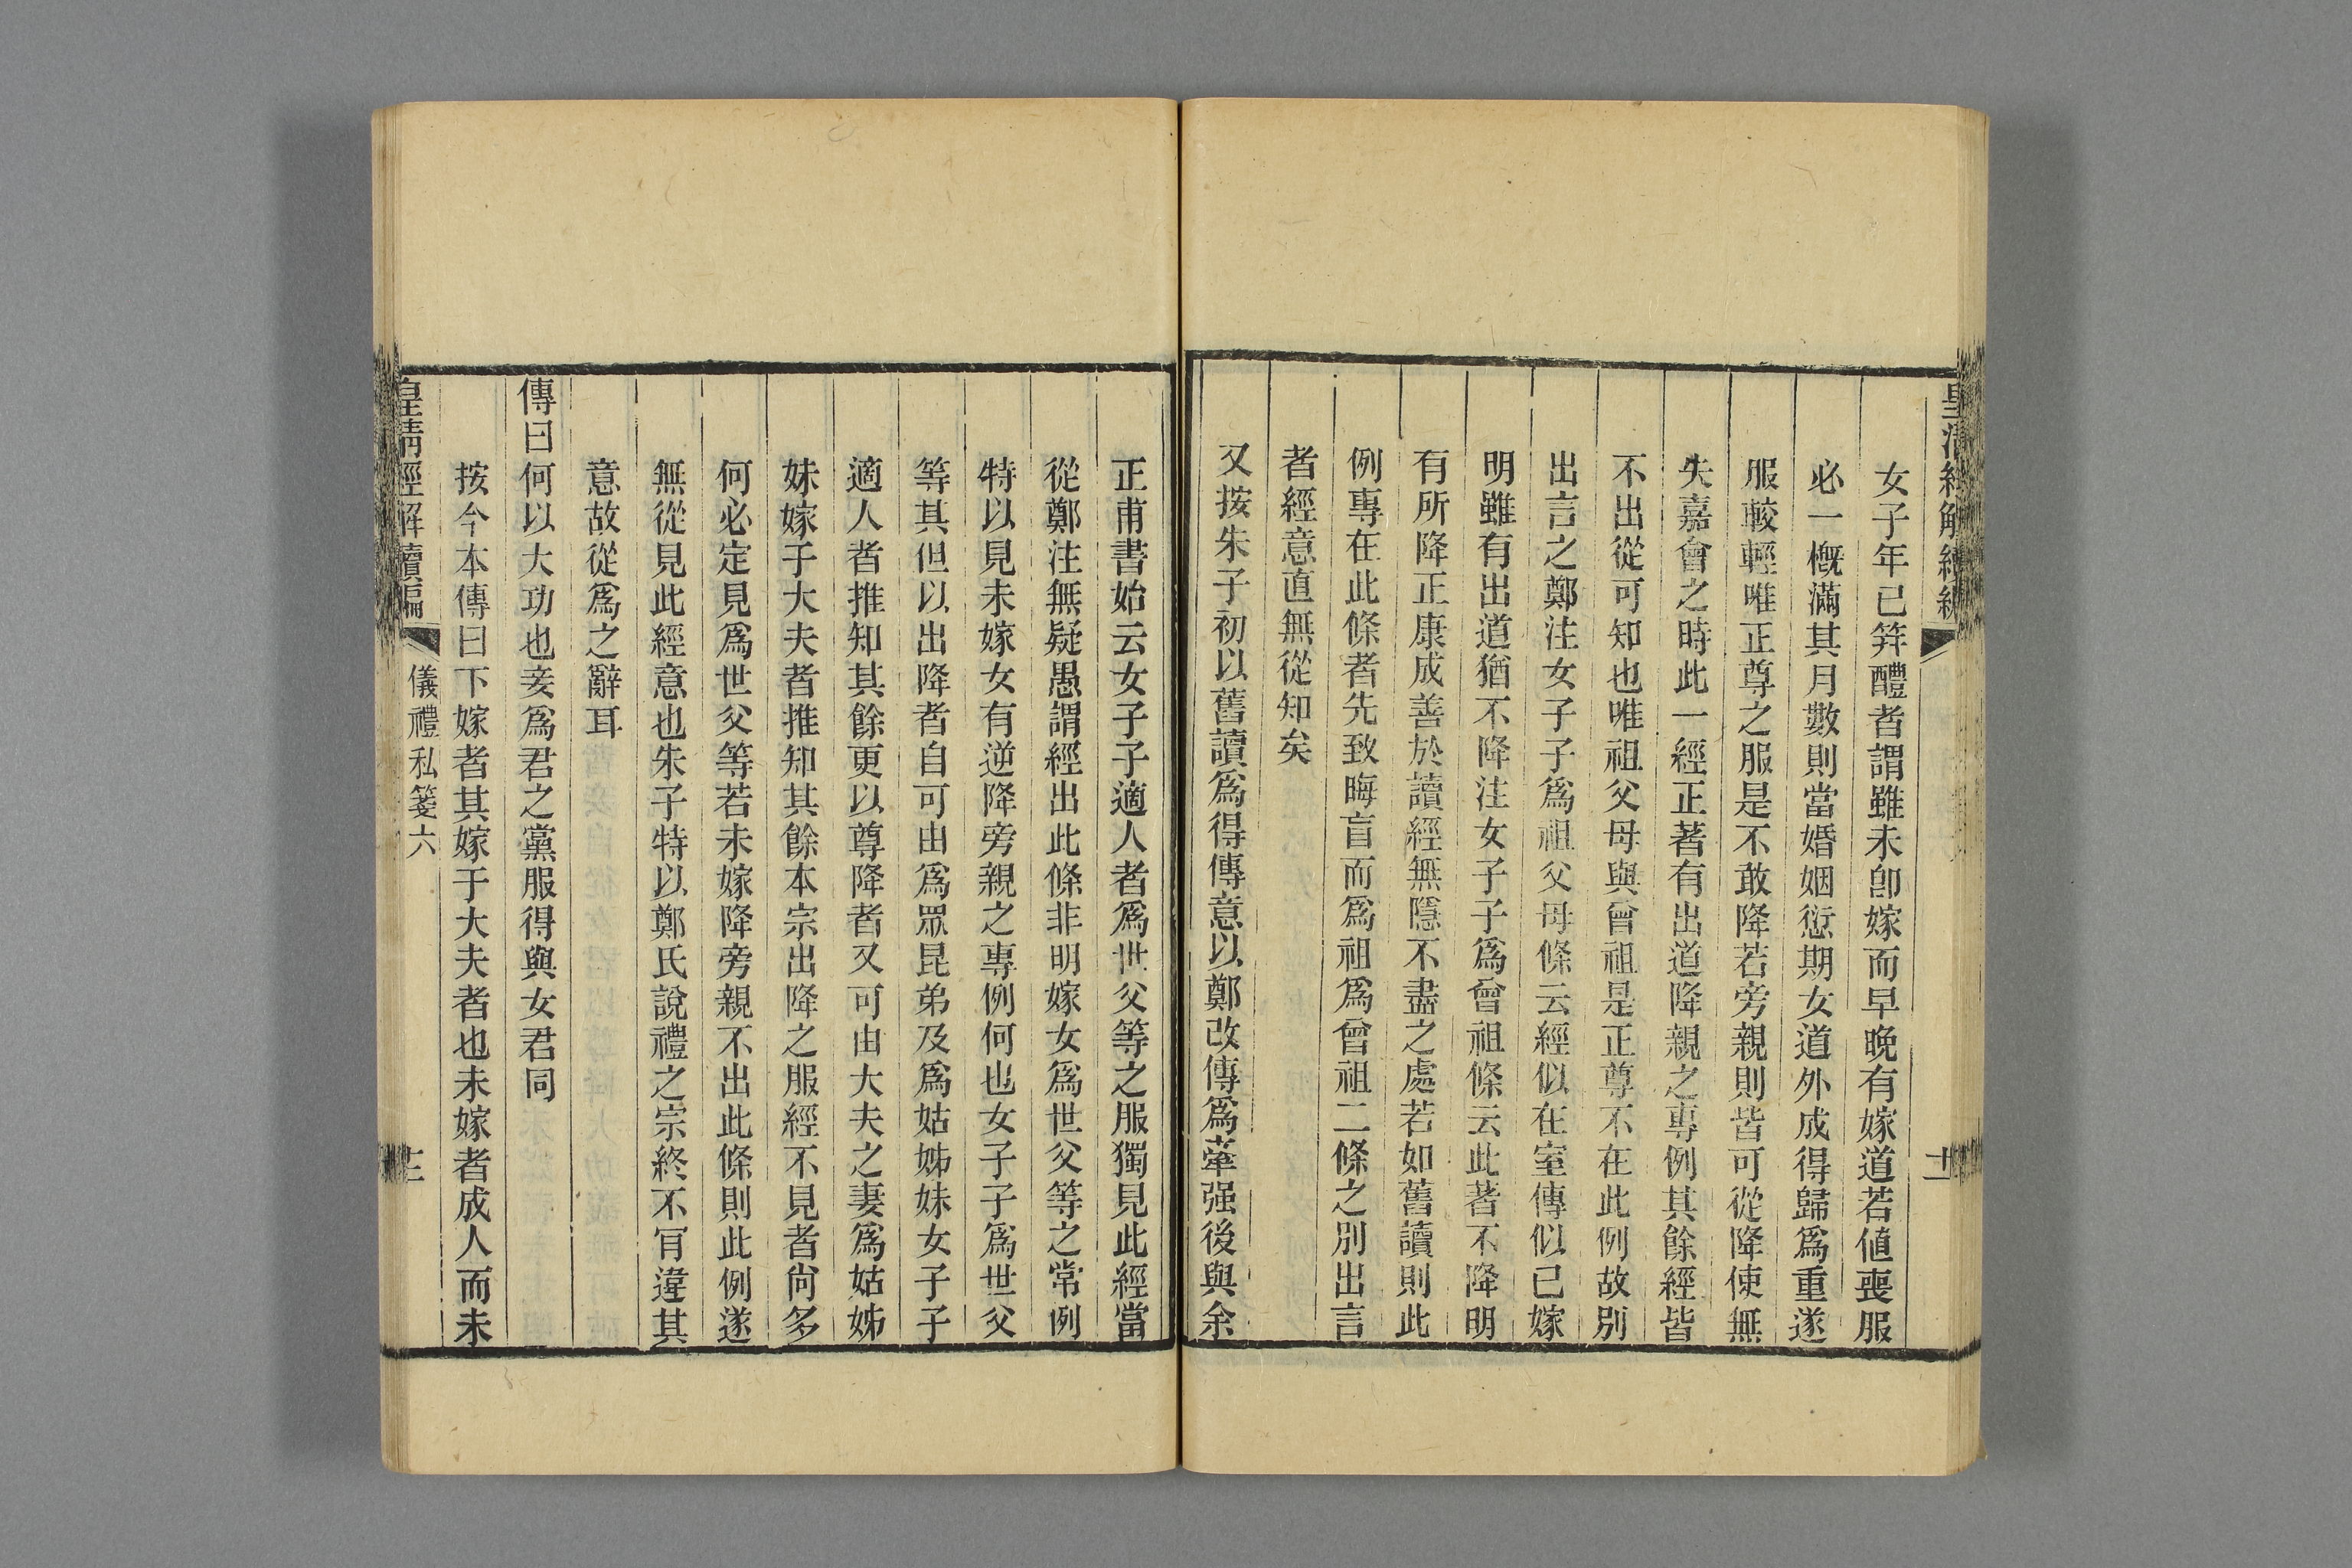 皇清經解續編
十一
女子年已筓醴者謂雖未卽嫁而早晚有嫁道若値喪服
必一槪滿其月數則當婚姻愆期女道外成得歸爲重遂
服較輕唯正尊之服是不敢降若旁親則皆可從降使無
失嘉會之時此一經正著有出道降親之專例其餘經皆
不出從可知也唯祖父母與曾祖是正尊不在此例故別
出言之鄭注女子子爲祖父母條云經似在室傳似已嫁
明雖有出道猶不降注女子子爲曾祖條云此著不降明
有所降正康成善於讀經無隱不盡之處若如舊讀則此
例專在此條者先致晦盲而爲祖爲曾祖二條之別出言
者經意直無從知矣
又按朱子初以舊讀爲得傳意以鄭改傳爲牽强後與余
正甫書始云女子子適人者爲世父等之服獨見此經當
從鄭注無疑愚謂經出此條非明嫁女爲世父等之常例
特以見未嫁女有逆降旁親之專例何也女子子爲世父
等其但以出降者自可由爲眾昆弟及爲姑姊妹女子子
適人者推知其餘更以尊降者又可由大夫之妻爲姑姊
妹嫁于大夫者推知其餘本宗出降之服經不見者尙多
何必定見爲世父等若未嫁降旁親不出此條則此例遂
無從見此經意也朱子特以鄭氏說禮之宗終不肎違其
意故從爲之辭耳
傳曰何以大功也妾爲君之黨服得與女君同
按今本傳曰下嫁者其嫁于大夫者也未嫁者成人而未
皇清經解續編
儀禮私箋六